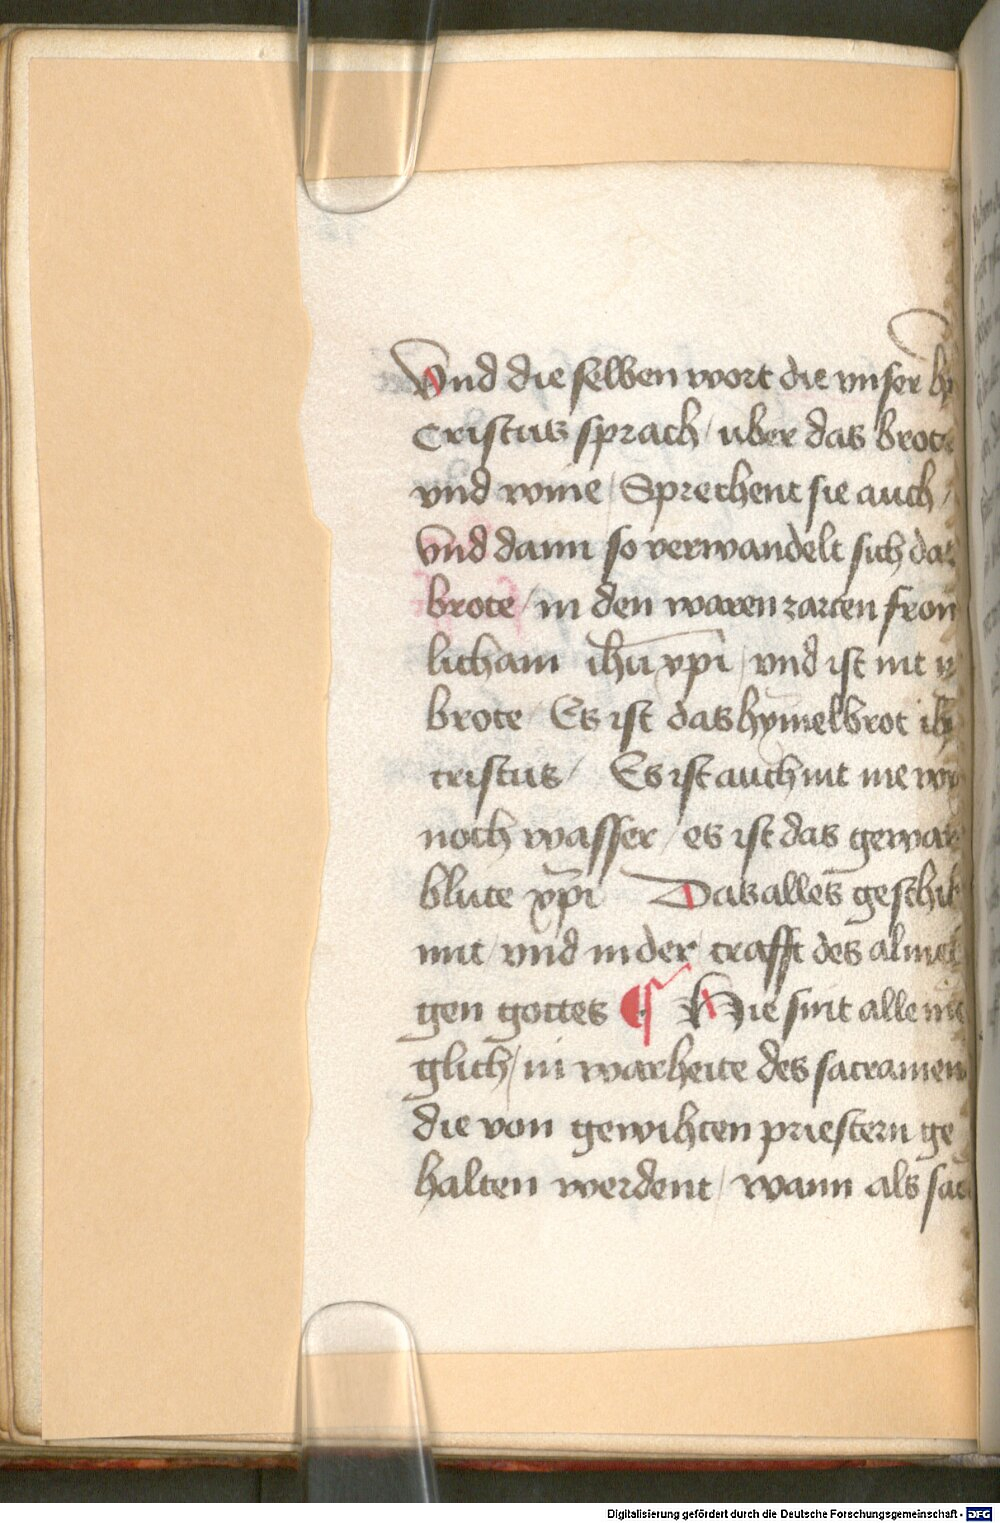 Vnd die selben wort die vnser
Cristus sprach / uber das brote
vnd wine / Sprechent sie auch /
Vnd dann so verwandelt sich das
brote / in den waren zarten fron
licham ihu xpi / vnd ist nit
brote / Es ist das hymelbrot
cristus / Es ist auch nit me
noch wasser / es ist das gewar
blute xpi Das alles geschih
mit / vnd in der crafft des almeh
gen gottes ¶ Hie sint alle
glich / in warheite des sacramen
die von gewihten priestern ge
halten werdent / wann als
Digitalisierung gefördert durch die Deutsche Forschungsgemeinschaft - DFG